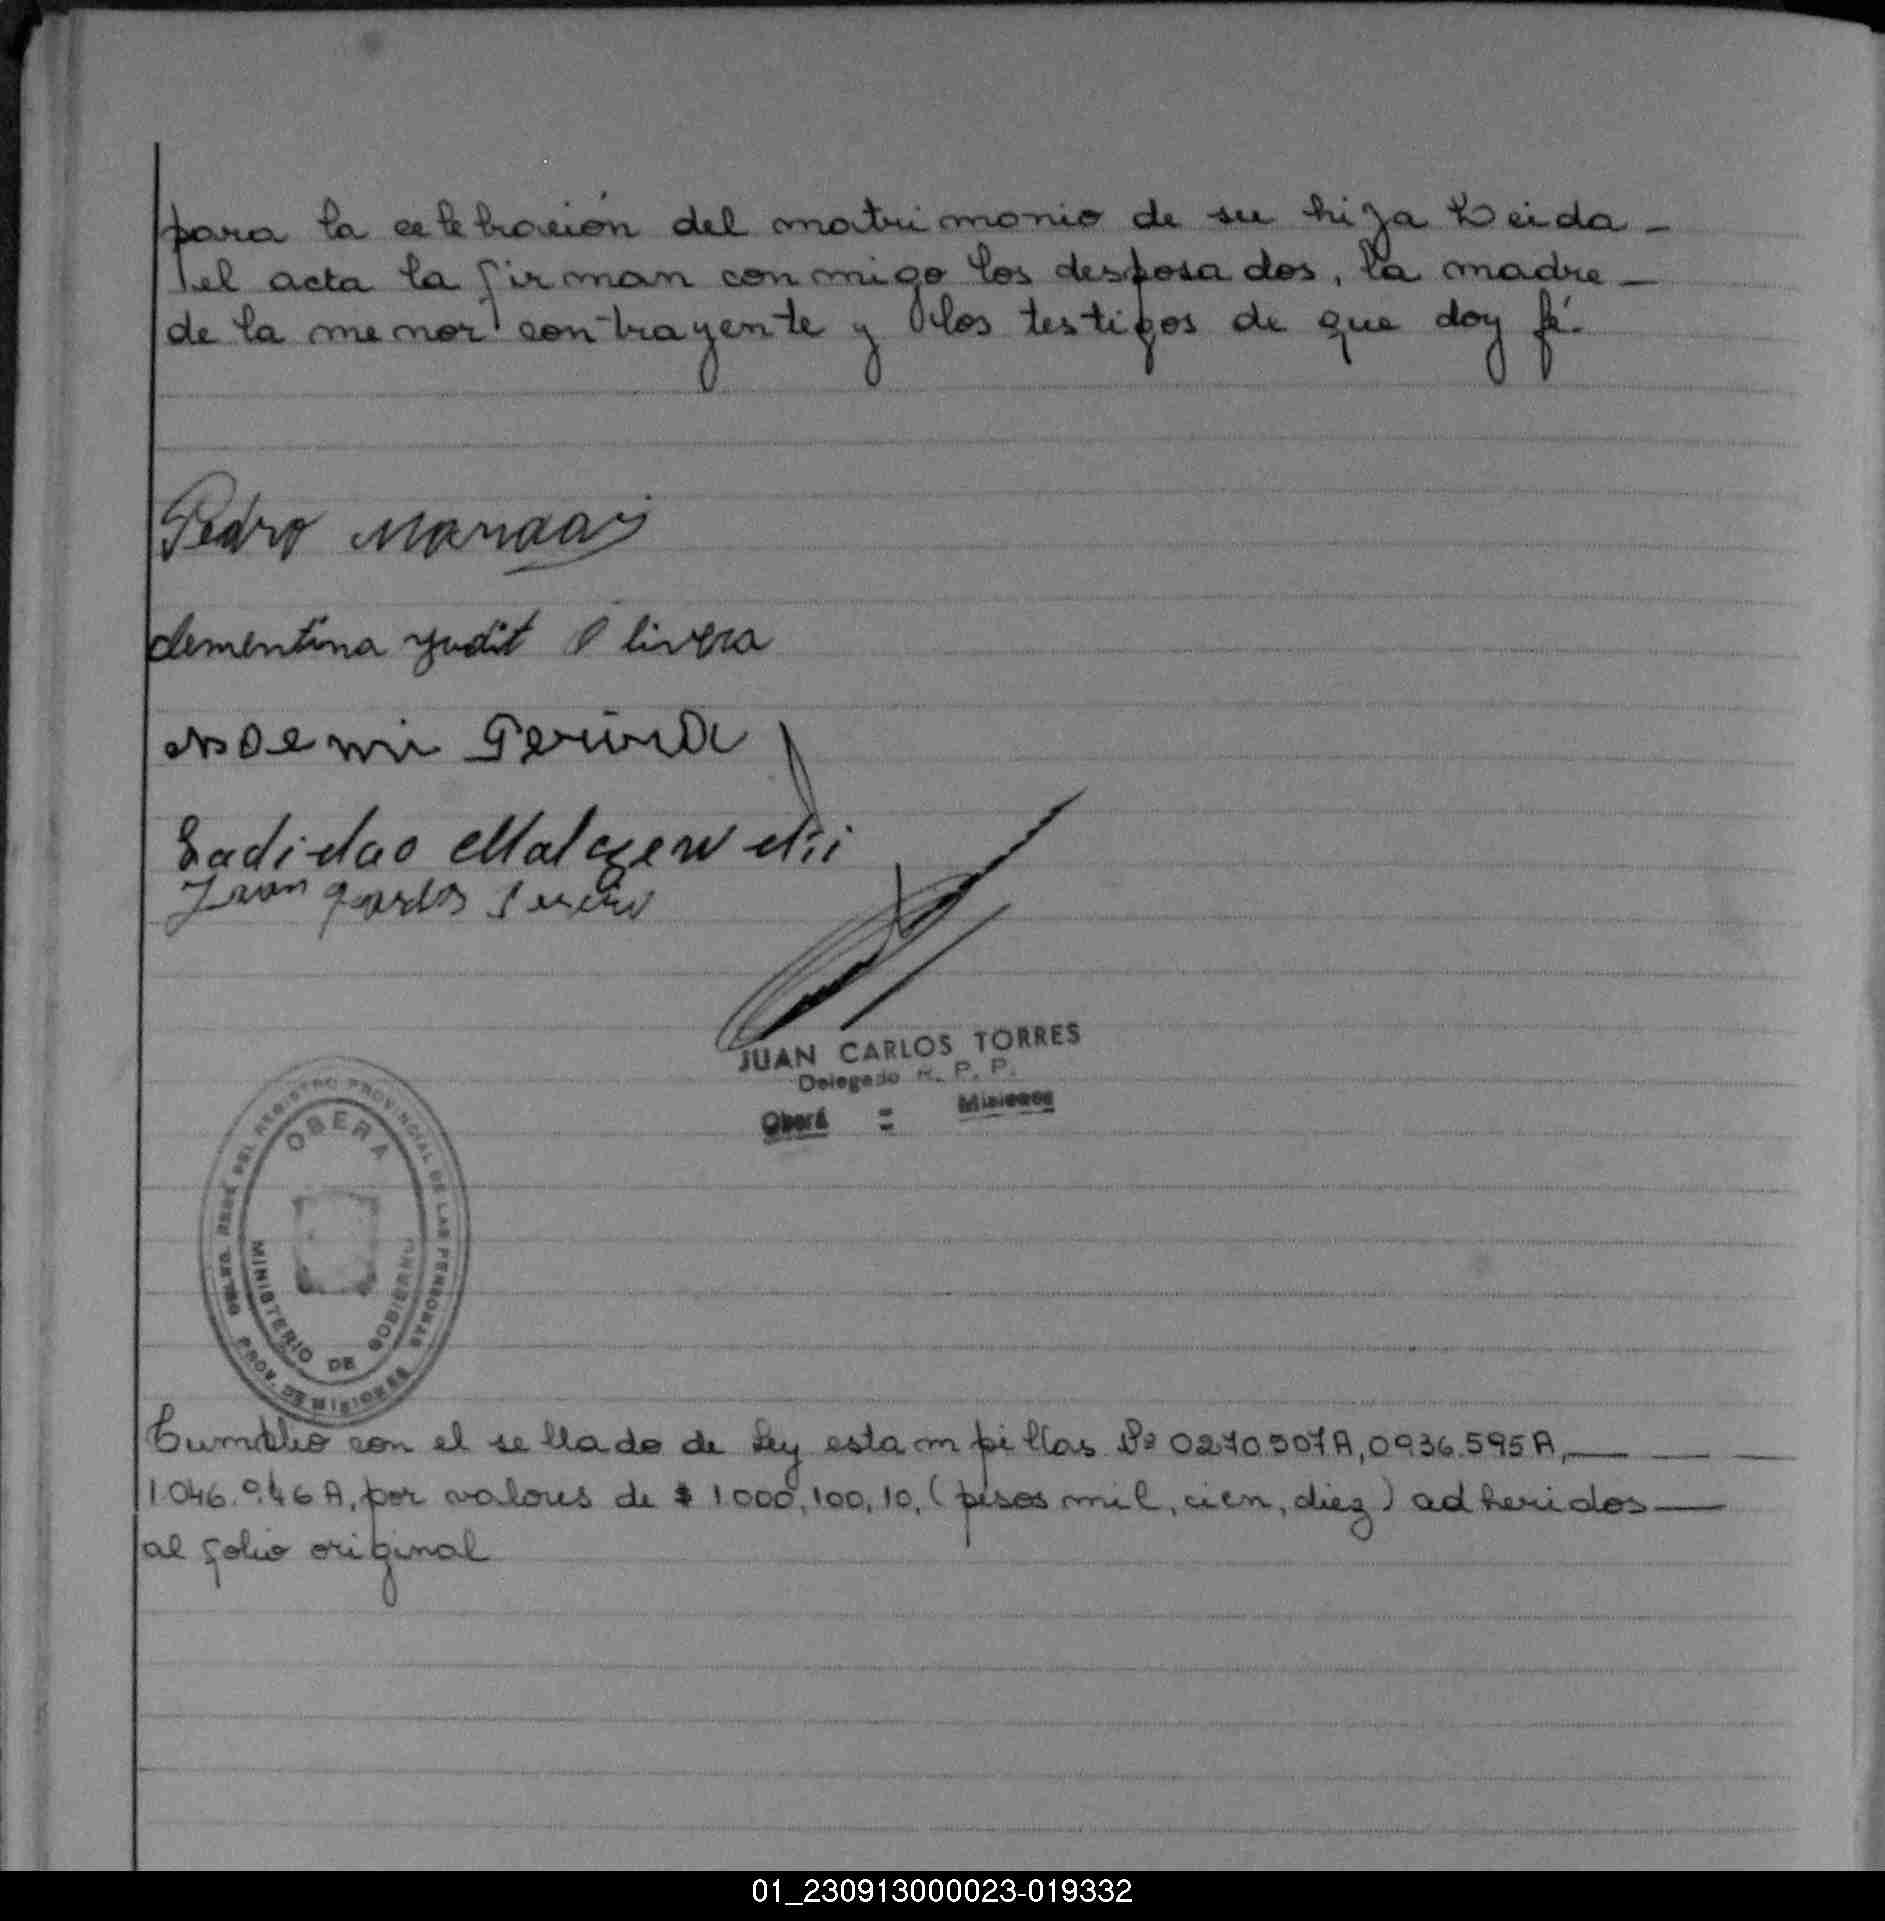 para la celebración del matrimonio de su hija Leida -
el acta la firman conmigo los desposados, la madre -
de la menor contrayente y los testigos de que doy fé.-
Pedro
Clementina Yudit Olivera
Noemi
Ladislao
Juan Carlos
JUAN CARLOS TORRES
Delegado R. P. P.
Oberá = Misiones
DEL REGISTRO PROVINCIAL DE LAS PERSONAS
OBERA
MINISTERIO DE GOBIERNO
PROV. DE MISIONES
Cumplio con el sellado de Ley estampillas Nº 0270507A, 0936.595A,
1.046.946A, por valores de $ 1.000, 100, 10, (pesos mil, cien, diez) adheridos
al folio original
01_230913000023-019332